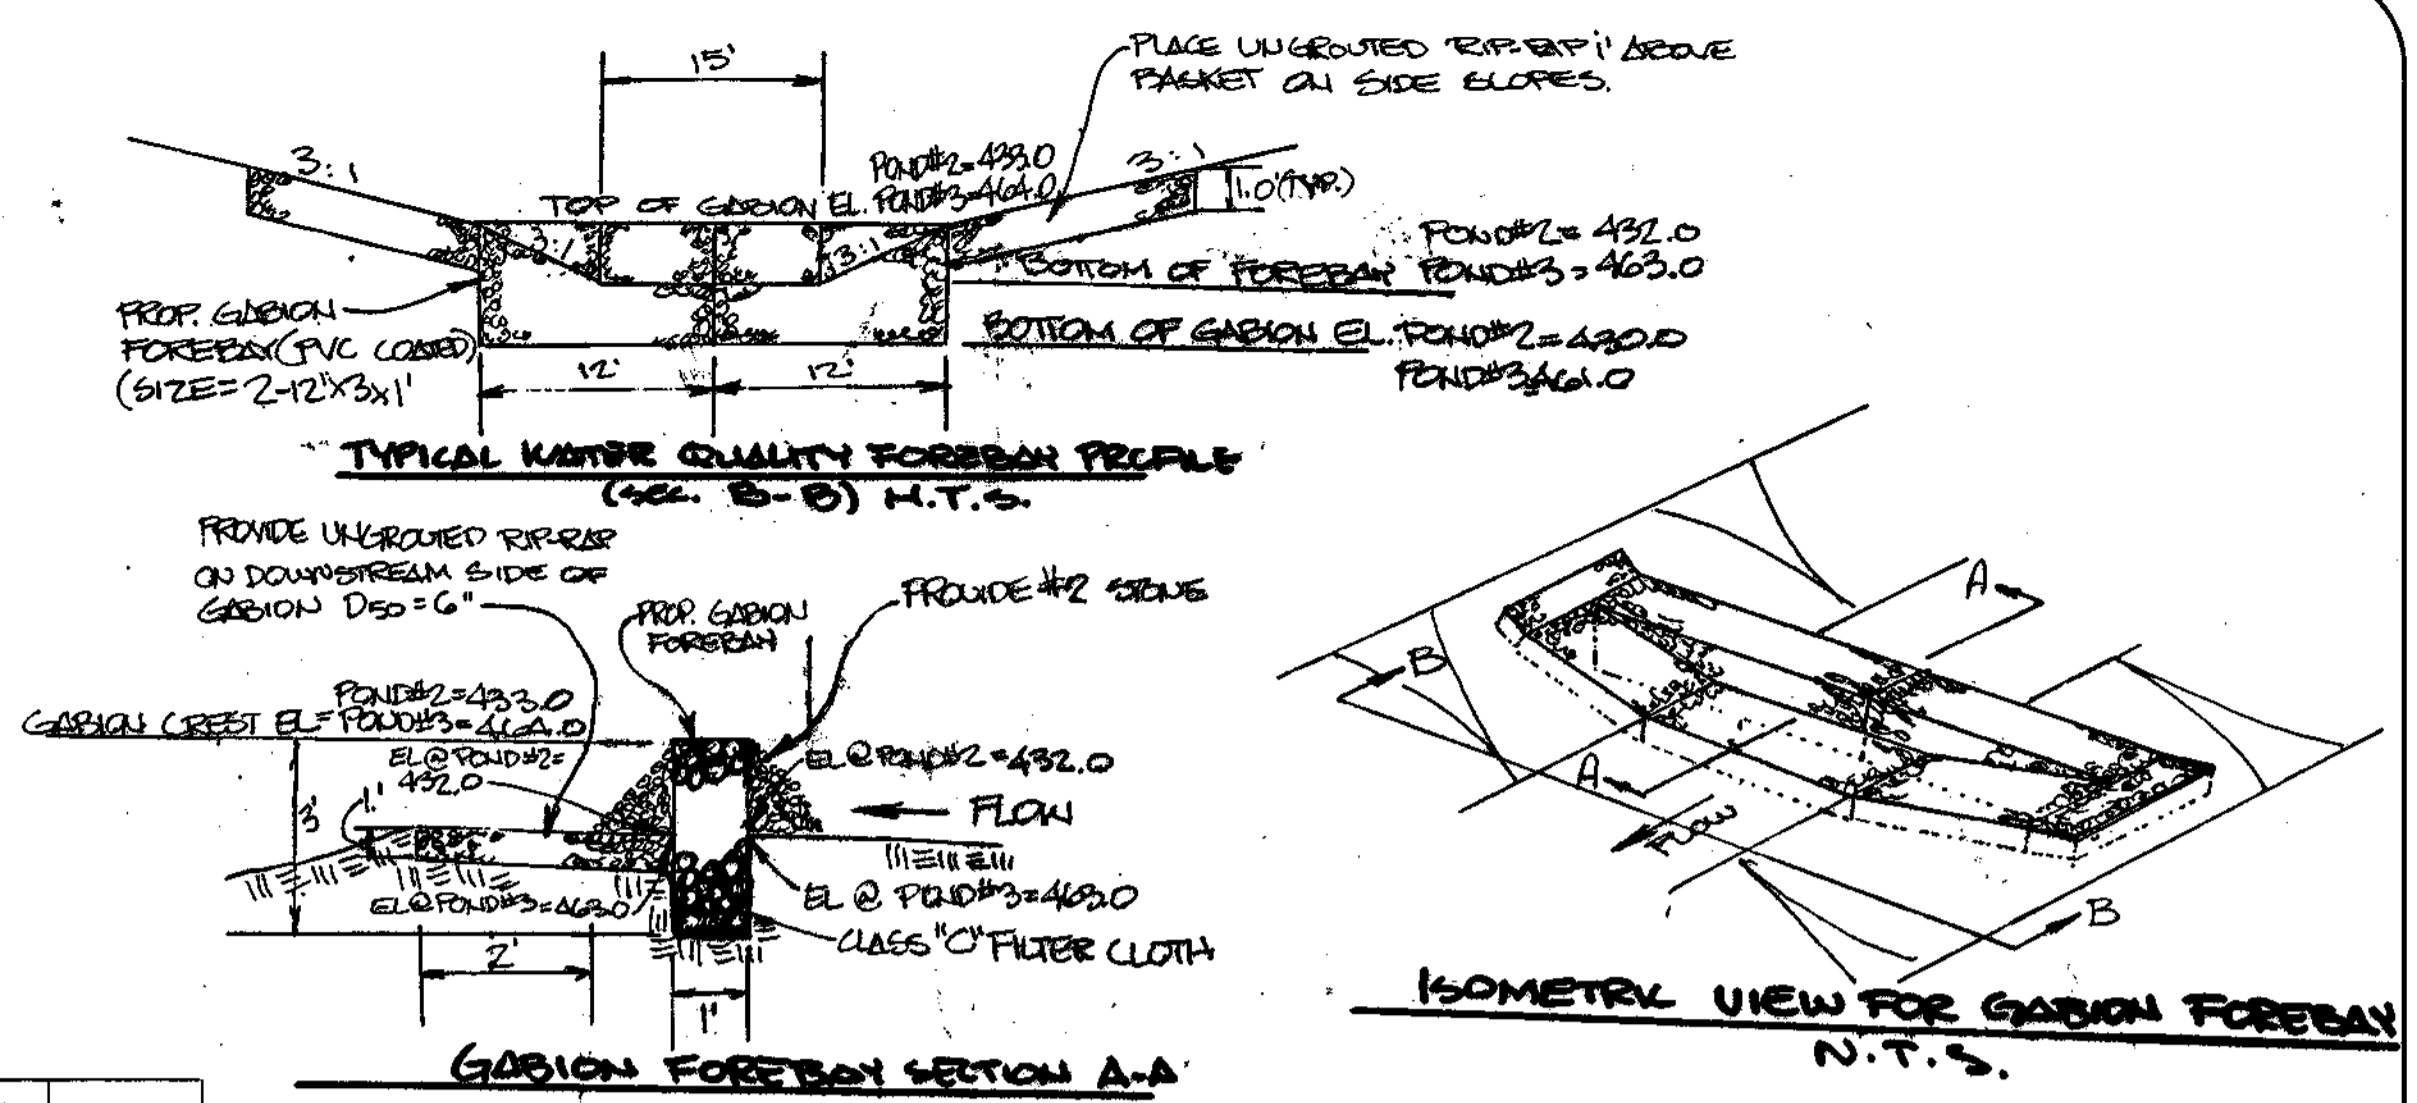 15'
PLACE UNGROUTED RIP-RAP 1' ABOVE
BASKET ON SIDE SLOPES.
3:1
POND#2=433.0
TOP OF GABION EL. POND#3=464.0
3:1
1.0'(TYP.)
3:1
3:1
POND#2= 432.0
BOTTOM OF FOREBAY POND#3=463.0
BOTTOM OF GABION EL. POND#2=430.0
POND#3=461.0
PROP. GABION
FOREBAY(PVC COATED)
(SIZE=2-12'x3x1'
12'
12'
TYPICAL WATER QUALITY FOREBAY PROFILE
(SEC. B-B) N.T.S.
PROVIDE UNGROUTED RIP-RAP
ON DOWNSTREAM SIDE OF
GABION D50=6"
PROP. GABION
FOREBAY
PROVIDE #2 STONE
POND#2=433.0
GABION CREST EL= POND#3=464.0
EL@POND#2=
432.0
EL@POND#2=432.0
FLOW
1'
3'
EL@POND#3=463.0
EL @ POND#3=463.0
CLASS "C" FILTER CLOTH
2'
1'
GABION FOREBAY SECTION A-A
A
B
A
FLOW
B
ISOMETRIC VIEW FOR GABION FOREBAY
N.T.S.